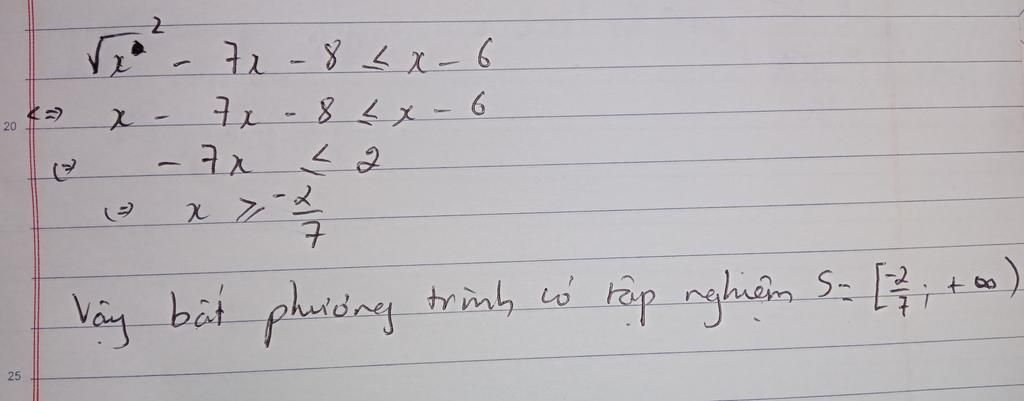 √x² - 7x - 8 ≤ x - 6
20 <=> x - 7x - 8 ≤ x - 6
(=> - 7x ≤ 2
(=> x ≥ -2/7
Vậy bất phương trình có tập nghiệm S = [-2/7; +∞)
25